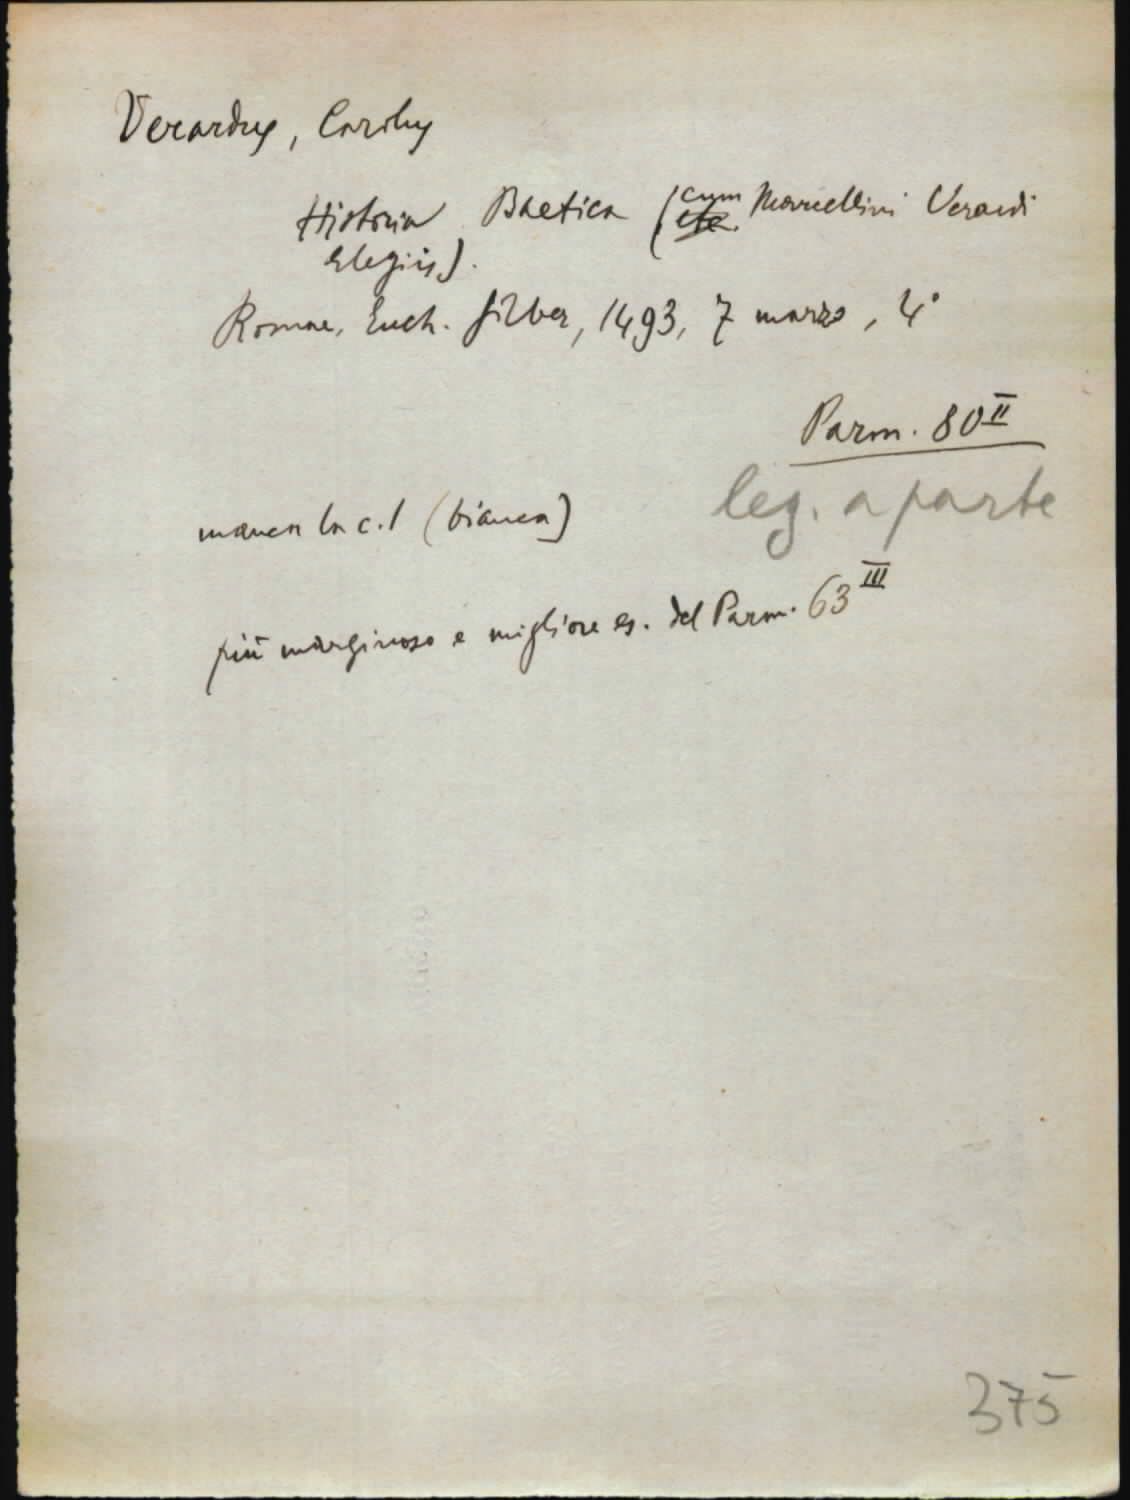 Verardus, Carolus
Historia Baetica (cum Marcellini Verardi
Elegiis).
Romae, Euch. Silber, 1493, 7 marzo, 4°
Parm. 80II
leg. a parte
manca la c. 1 (bianca)
più marginoso e migliore es. del Parm. 63III
375